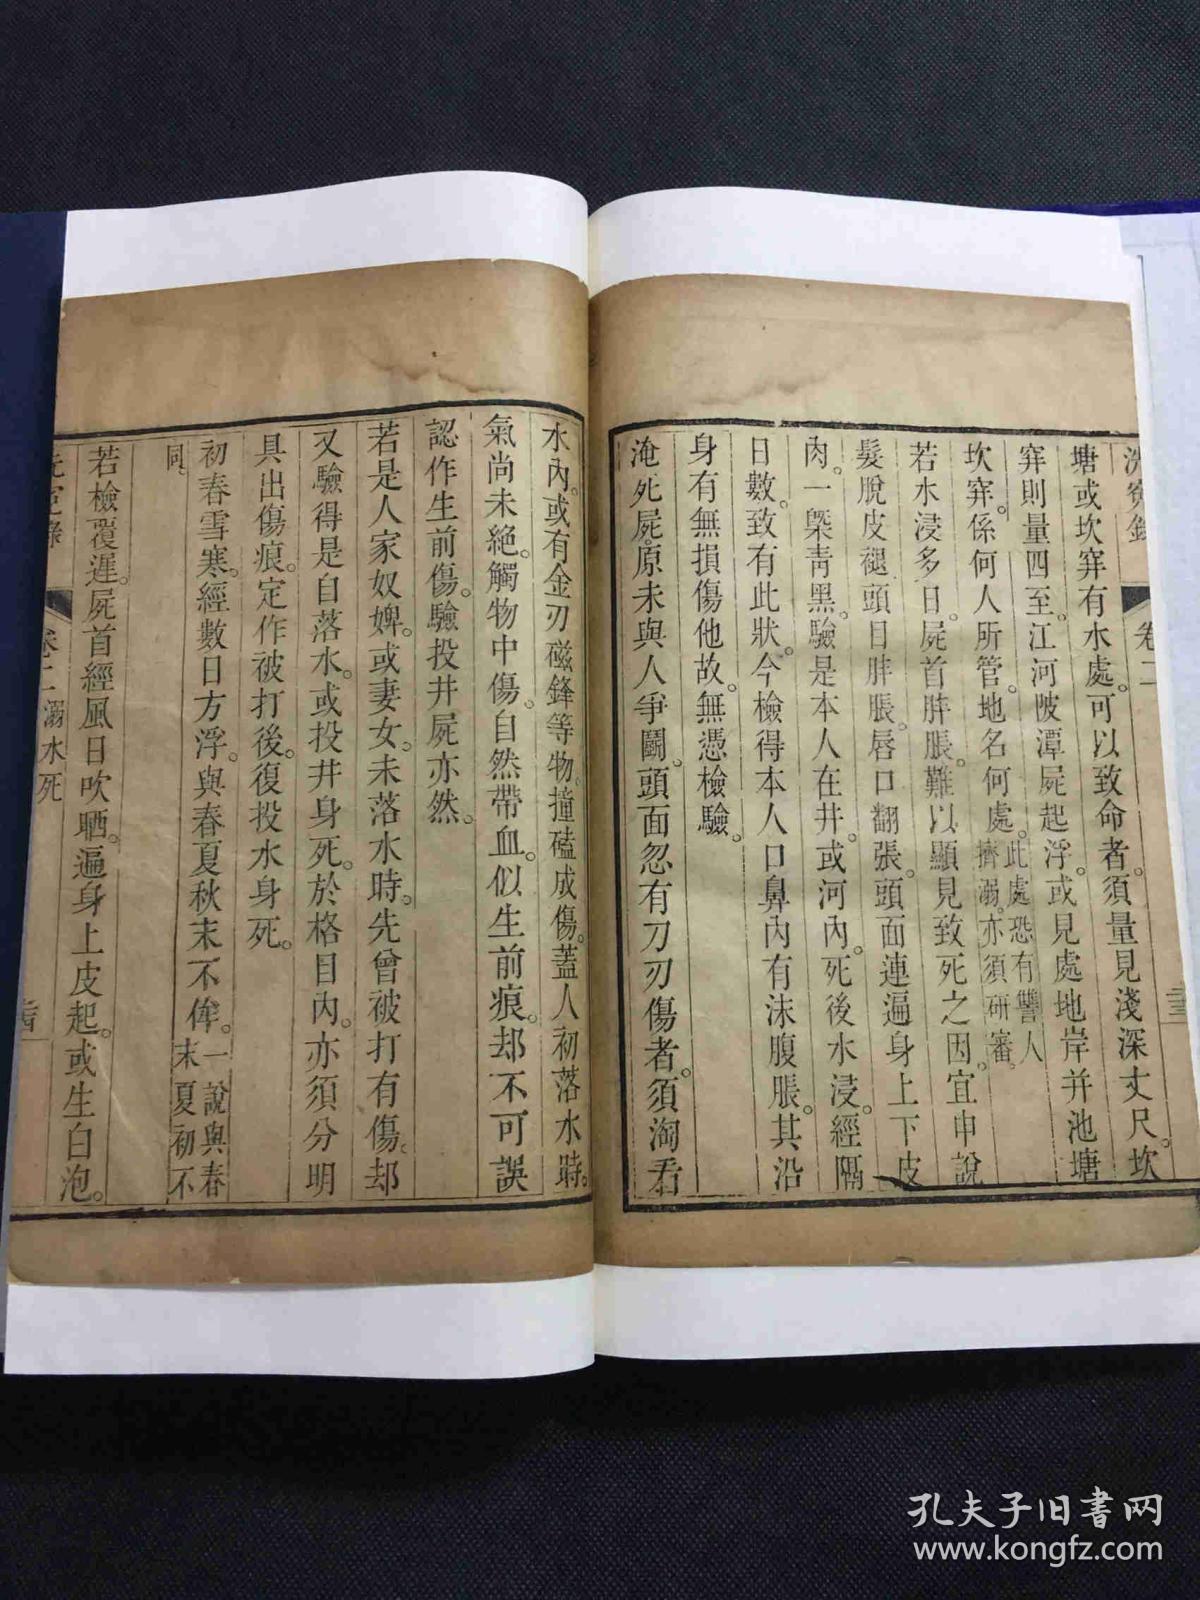 洗寃錄 卷二 二十三
塘或坎穽有水處可以致命者須量見淺深丈尺坎
穽則量四至江河陂潭屍起浮或見處地岸并池塘
坎穽係何人所管地名何處此處恐有讐人擠溺亦須研審
若水浸多日屍首胖脹難以顯見致死之因宜申說
髮脫皮褪頭目胖脹唇口翻張頭面連遍身上下皮
肉一槩靑黑驗是本人在井或河內死後水浸經隔
日數致有此狀今檢得本人口鼻內有沫腹脹其沿
身有無損傷他故無憑檢驗
淹死屍原未與人爭鬭頭面忽有刀刃傷者須淘看
水內或有金刃磁鋒等物撞磕成傷蓋人初落水時
氣尚未絕觸物中傷自然帶血似生前痕却不可誤
認作生前傷驗投井屍亦然
若是人家奴婢或妻女未落水時先曾被打有傷却
又驗得是自落水或投井身死於格目內亦須分明
具出傷痕定作被打後復投水身死
初春雪寒經數日方浮與春夏秋末不侔一說與春末夏初不
同
若檢覆遲屍首經風日吹晒遍身上皮起或生白泡
洗寃錄 卷二 溺水死 二十四
孔夫子旧书网
www.kongfz.com